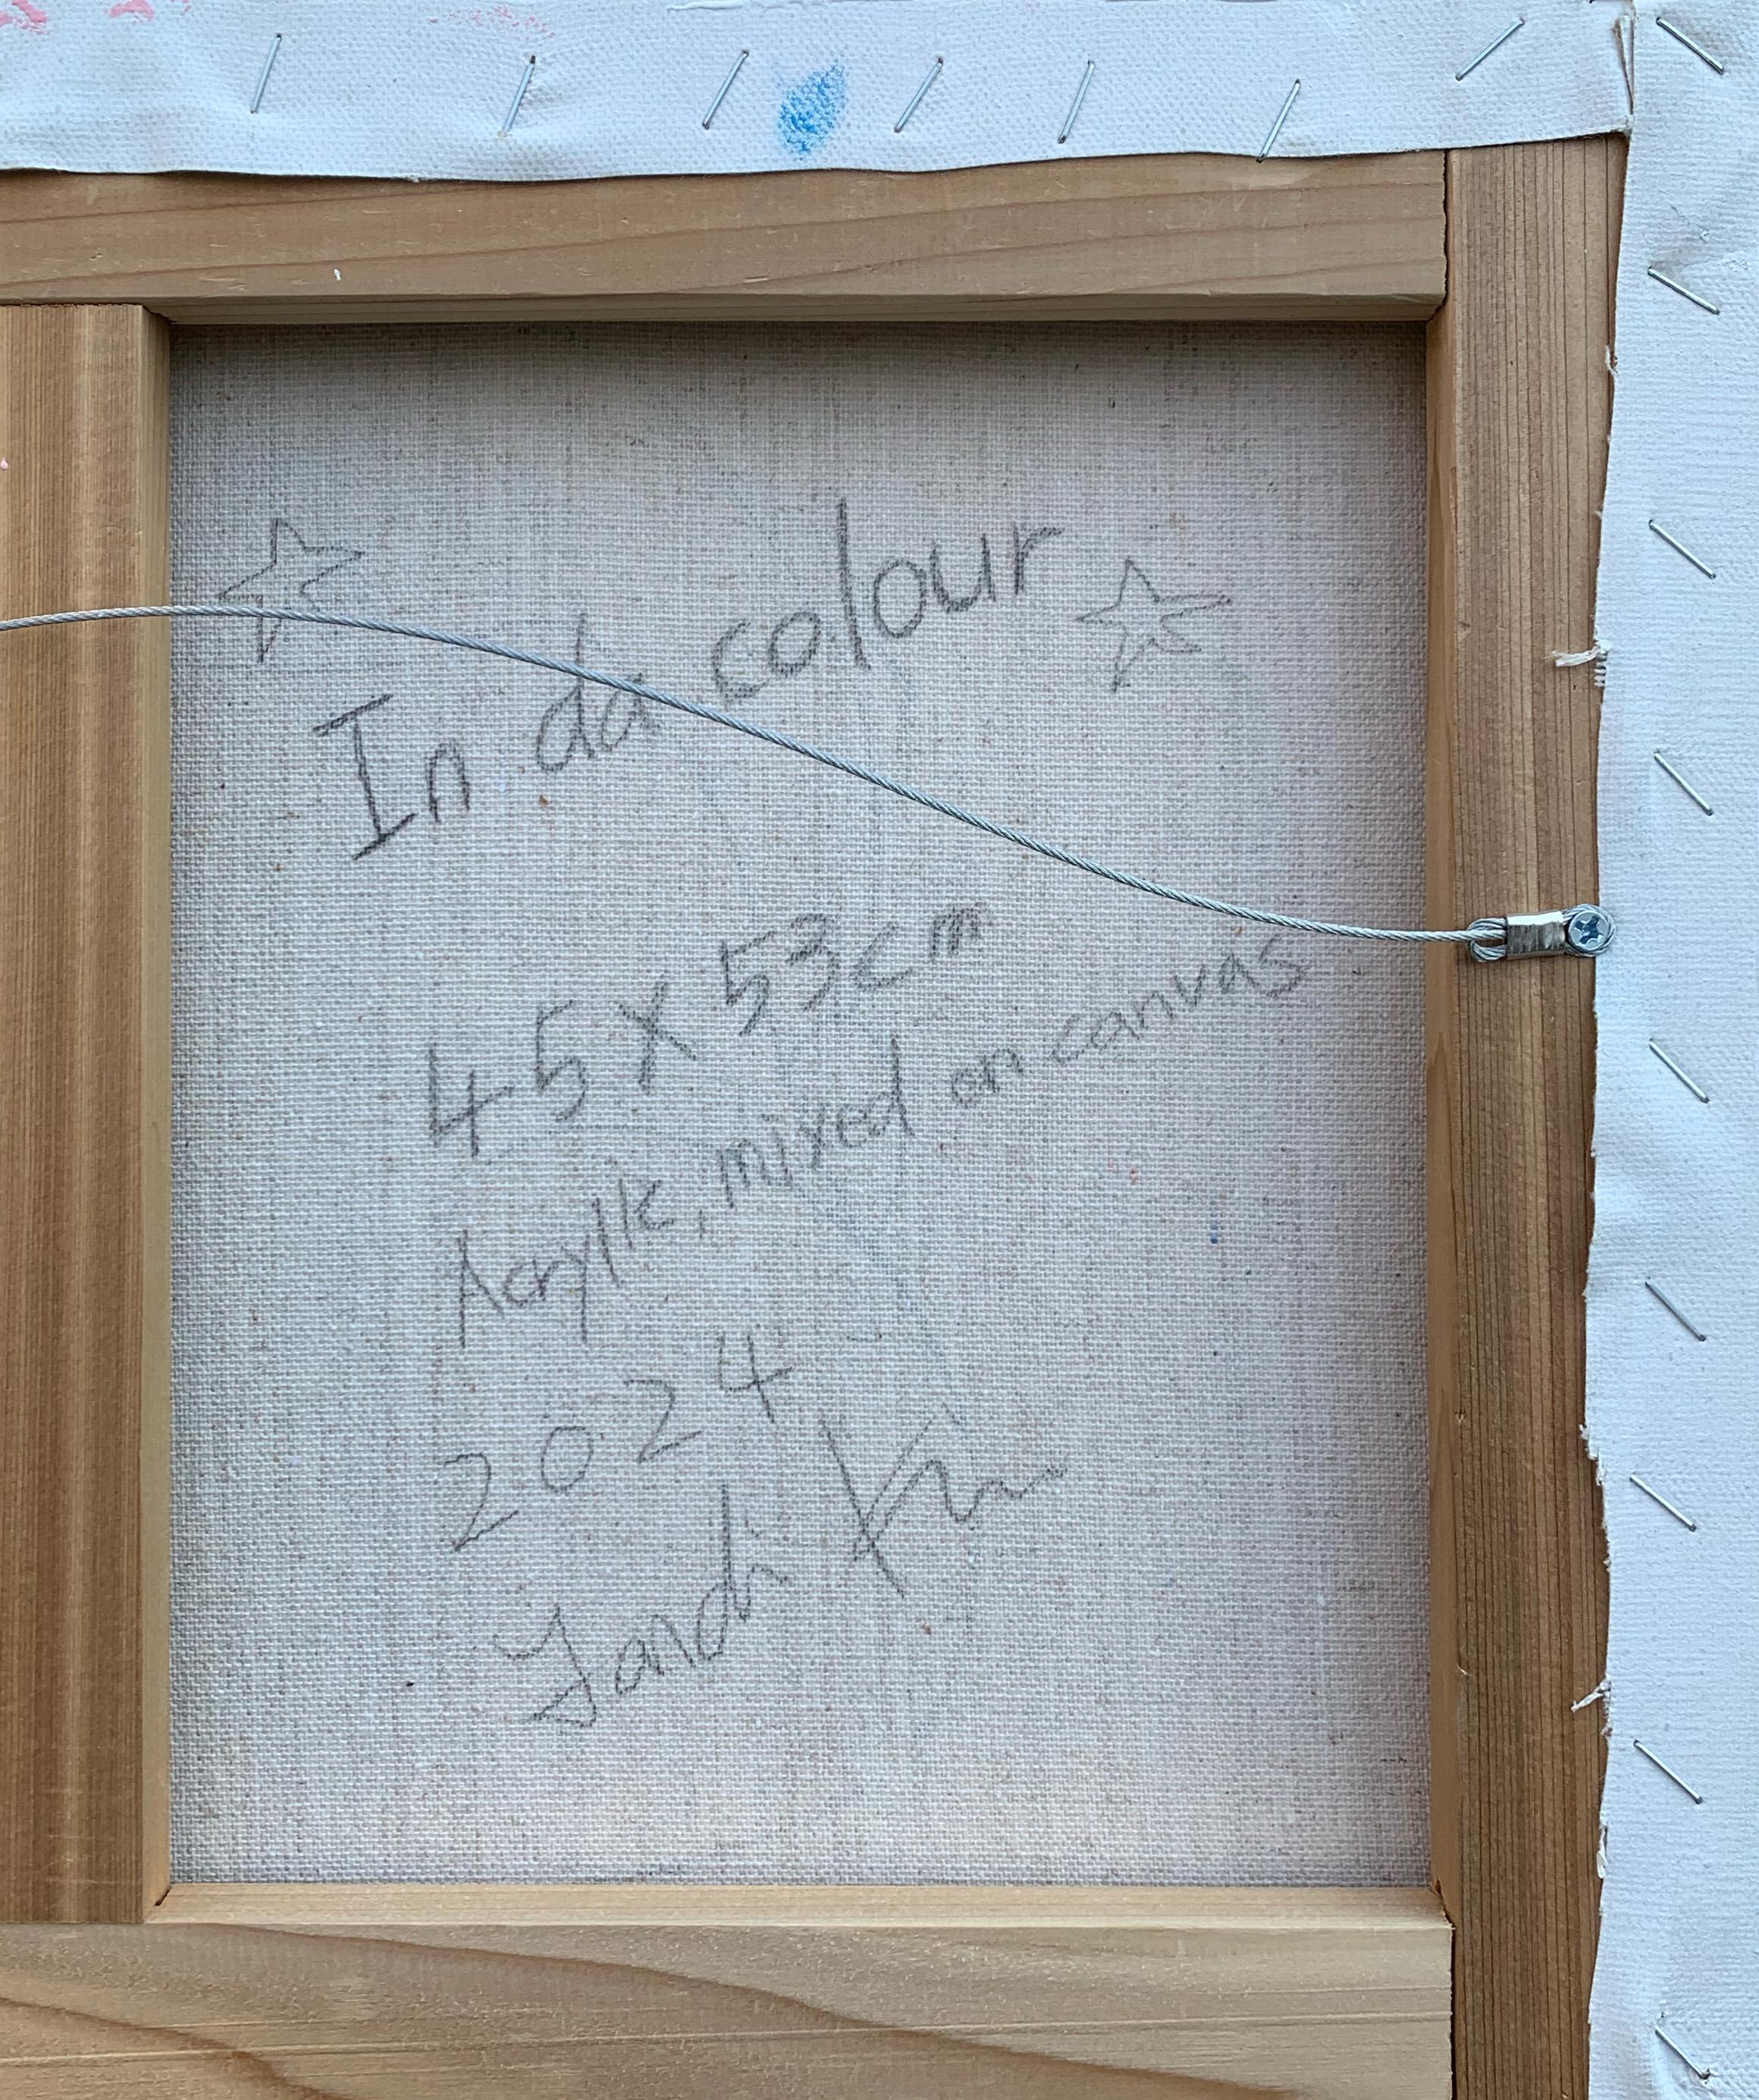 In da colour
45 x 53cm
Acrylic, mixed on canvas
2024